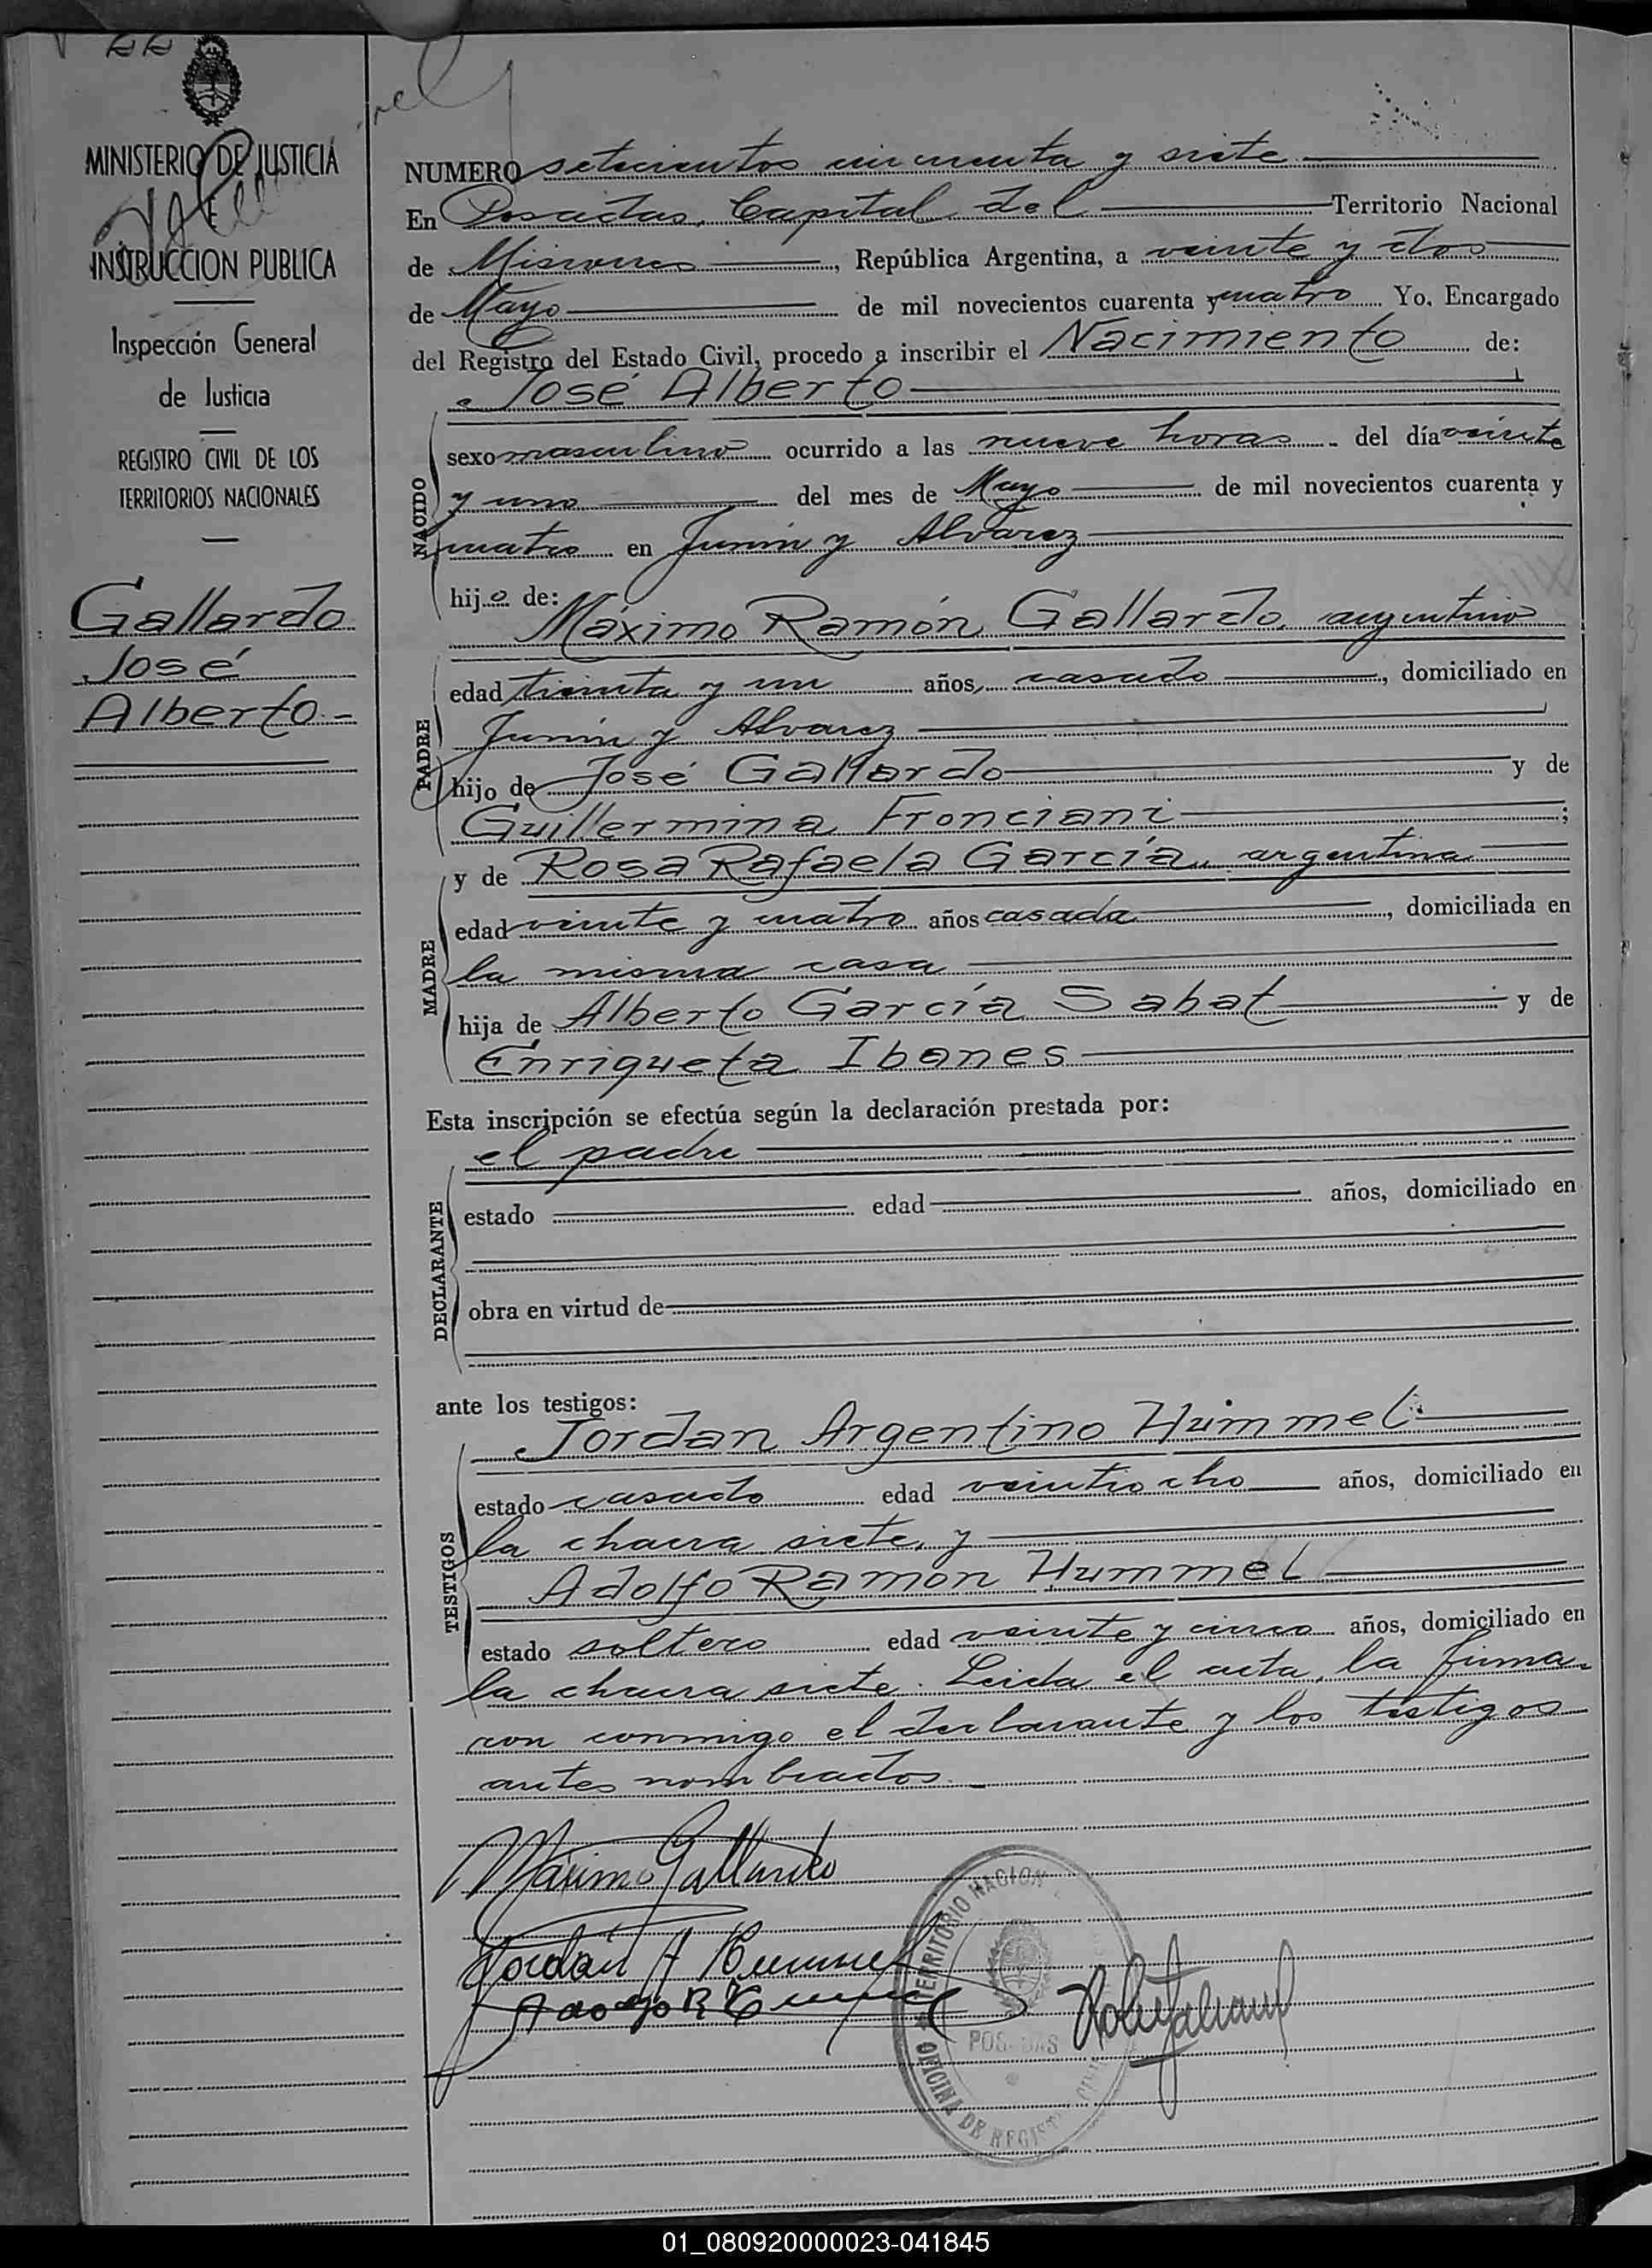 MINISTERIO DE JUSTICIA
E
INSTRUCCION PUBLICA
Inspección General
de Justicia
REGISTRO CIVIL DE LOS
TERRITORIOS NACIONALES
Gallardo
José
Alberto.-
NUMERO setecientos cincuenta y siete
En Posadas, Capital del Territorio Nacional
de Misiones, República Argentina, a veinte y dos
de Mayo de mil novecientos cuarenta y cuatro Yo, Encargado
del Registro del Estado Civil, procedo a inscribir el Nacimiento de:
José Alberto
NACIDO
sexo masculino ocurrido a las nueve horas del día veinte
y uno del mes de Mayo de mil novecientos cuarenta y
cuatro en Junín y Alvarez
hijo de:
Máximo Ramón Gallardo, argentino
PADRE
edad treinta y un años, casado, domiciliado en
Junín y Alvarez
hijo de José Gallardo y de
Guillermina Fronciani;
y de Rosa Rafaela García, argentina
MADRE
edad veinte y cuatro años casada, domiciliada en
la misma casa
hija de Alberto García Sabat y de
Enriqueta Ibanes
Esta inscripción se efectúa según la declaración prestada por:
el padre
DECLARANTE
estado edad años, domiciliado en
obra en virtud de
ante los testigos:
Jordan Argentino Hummel
TESTIGOS
estado casado edad veintiocho años, domiciliado en
la chacra siete, y
Adolfo Ramón Hummel
estado soltero edad veinte y cinco años, domiciliado en
la chacra siete. Leida el acta, la firma
con conmigo el declarante y los testigos
antes nombrados.-
Máximo Gallardo
Jordán A Hummel
Adolfo R Hummel
TERRITORIO NACION
POSADAS
OFICINA DE REGIST
01_080920000023-041845